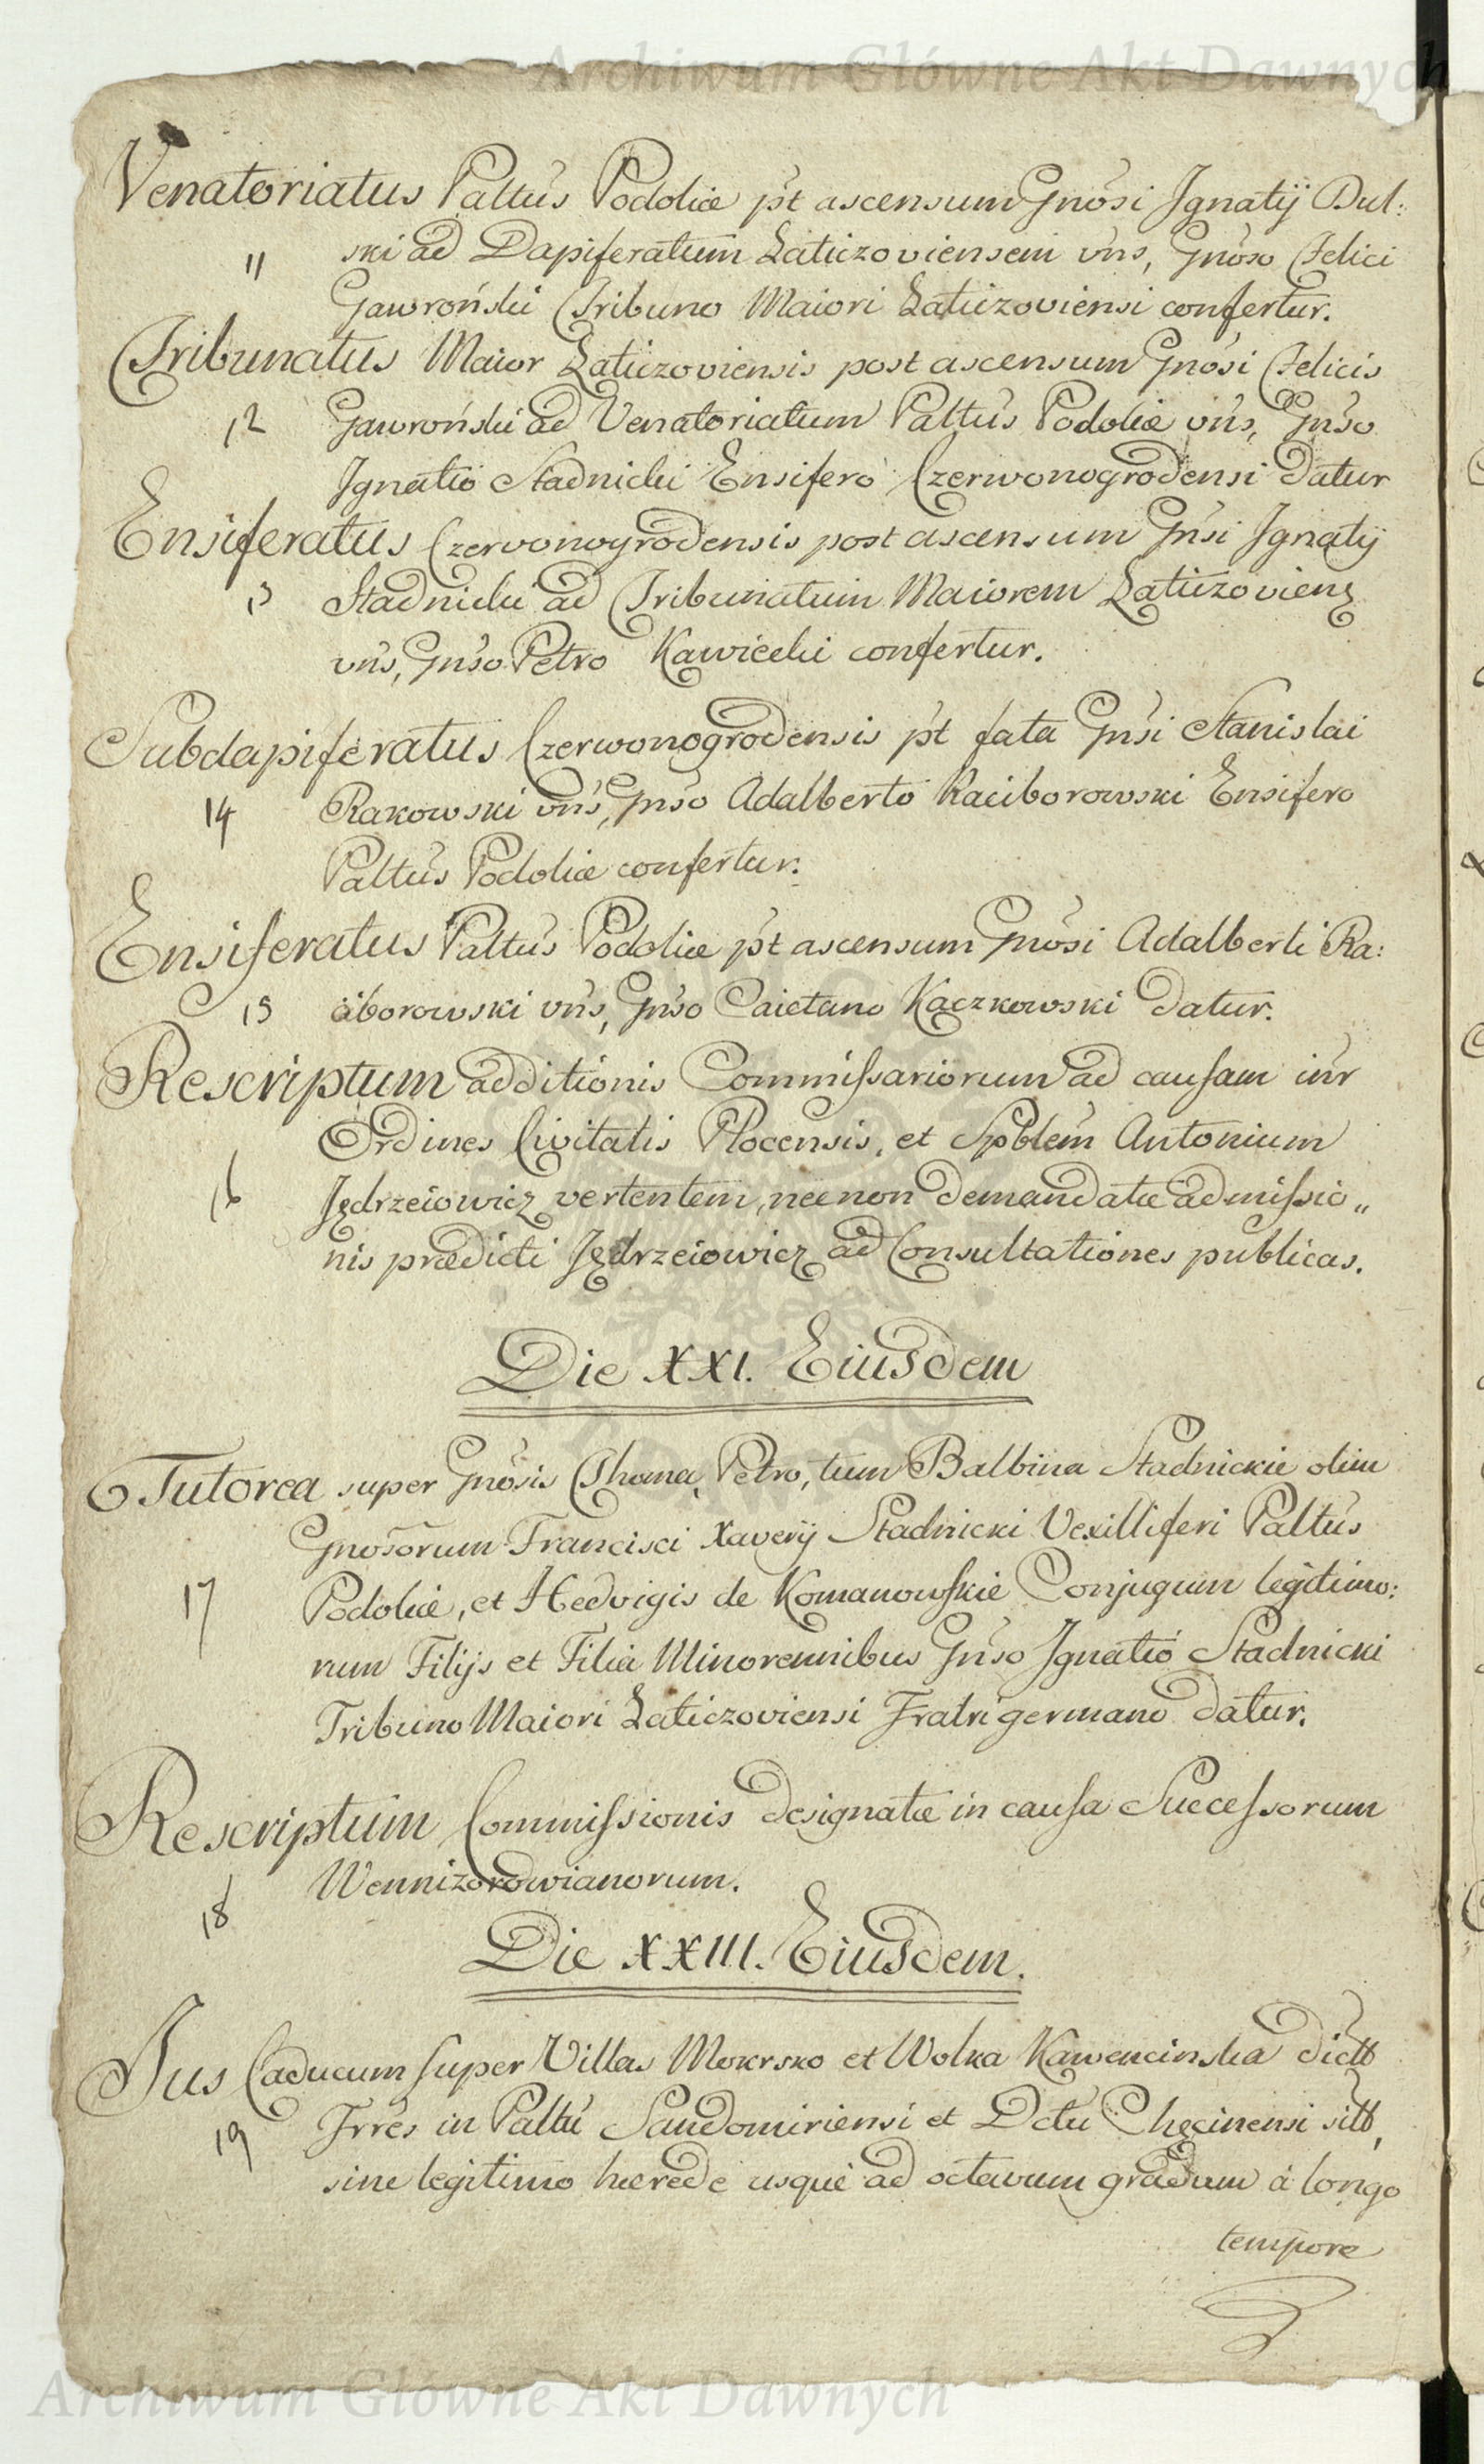 Archiwum Główne Akt Dawnych
Venatoriatus Paltus Podoliæ pt ascensum Gnosi Ignatij Dul:
11 ski ad Dapiferatum Laticzoviensem vns, Gnoso Felici
Gawroński Tribuno Maiori Laticzoviensi confertur.
Tribunatus Maior Laticzoviensis post ascensum Gnosi Felicis
12 Gawroński ad Venatoriatum Paltus Podoliæ vns, Gnso
Ignatio Stadnicki Ensifero Czerwonogrodensi datur
Ensiferatus Czerwonogrodensis post ascensum Gnsi Ignatij
13 Stadnicki ad Tribunatum Maiorem Laticzoviens
vns, Gnso Petro Kawiecki confertur.
Subdapiferatus Czerwonogrodensis pt fata Gnsi Stanislai
14 Rakowski vns, Gnso Adalberto Raciborowski Ensifero
Paltus Podoliæ confertur.
Ensiferatus Paltus Podoliæ pt ascensum Gnosi Adalberti Ra:
15 ciborowski vns, Gnso Caietano Kaczkowski datur.
Rescriptum additionis Commissariorum ad causam inr
Ordines Civitatis Plocensis, et Spblem Antonium
16 Jędrzeiowicz vertentem, necnon demandatæ admissio„
nis prædicti Jędrzeiowicz ad Consultationes publicas.
Die XXI. Eiusdem
Tutorea super Gnosis Thoma, Petro, tum Balbina Stadnickie olim
Gnosorum Francisci Xaverij Stadnicki Vexilliferi Paltus
17 Podoliæ, et Hedvigis de Komanowskie Conjugum legitimo:
rum Filijs et Filia Minorennibus Gnso Ignatio Stadnicki
Tribuno Maiori Laticzoviensi Fratri germano datur.
Rescriptum Commissionis designatæ in causa Successorum
18 Wennizorowianorum.
Die XXIII. Eiusdem.
Jus Caducum super Villas Mokrsko et Wolka Kawencinska dictt
19 Frres in Paltu Sandomiriensi et Dctu Chęcinensi sitt,
sine legitimo hærede usque ad octavum gradum à longo
tempore
Archiwum Główne Akt Dawnych